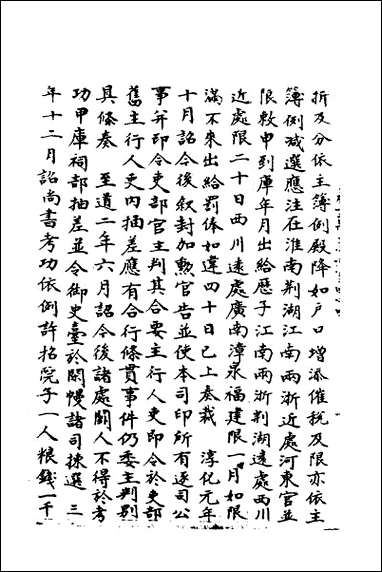 折及分依主簿例殿降如戶口增添催稅及限亦依主
簿例減選應注在淮南荆湖江南兩浙近處河東官並
限敕申到庫年月出給歷子江南兩浙荆湖遠處西川
近處限二十日西川遠處廣南漳泉福建限一月如限
滿不來出給罰俸如違四十日已上奏裁　淳化元年
十月詔今後敘封加勲官告並使本司印所有逐司公
事并即令吏部官主判其合要主行人吏即令於吏部
舊主行人吏内抽差應有合行條貫事件仍委主判別
具條奏　至道二年六月詔今後諸處闕人不得於考
功甲庫祠部抽差並令御史臺於閑慢諸司揀選　三
年十二月詔尚書考功依例許招院子一人粮錢一千